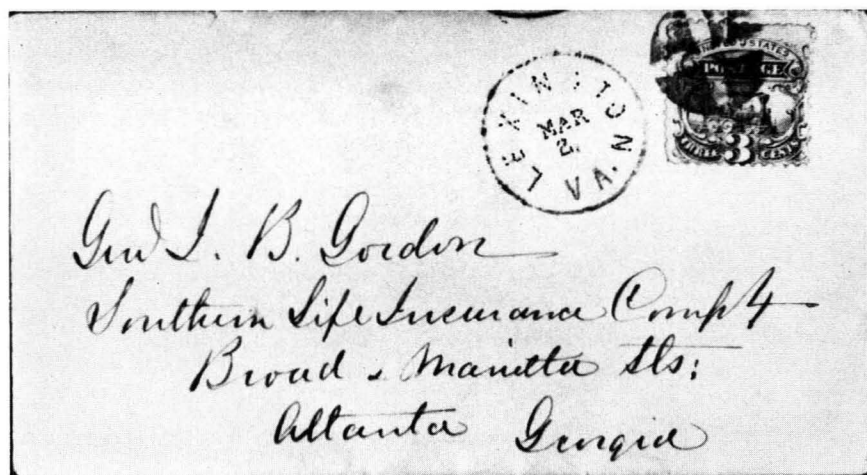 LEXINGTON
MAR
2
VA.
UNITED STATES
POSTAGE
THREE 3 CENTS
Genl J. B. Gordon
Southern Life Insurance Compy
Broad & Marietta Sts:
Atlanta Georgia